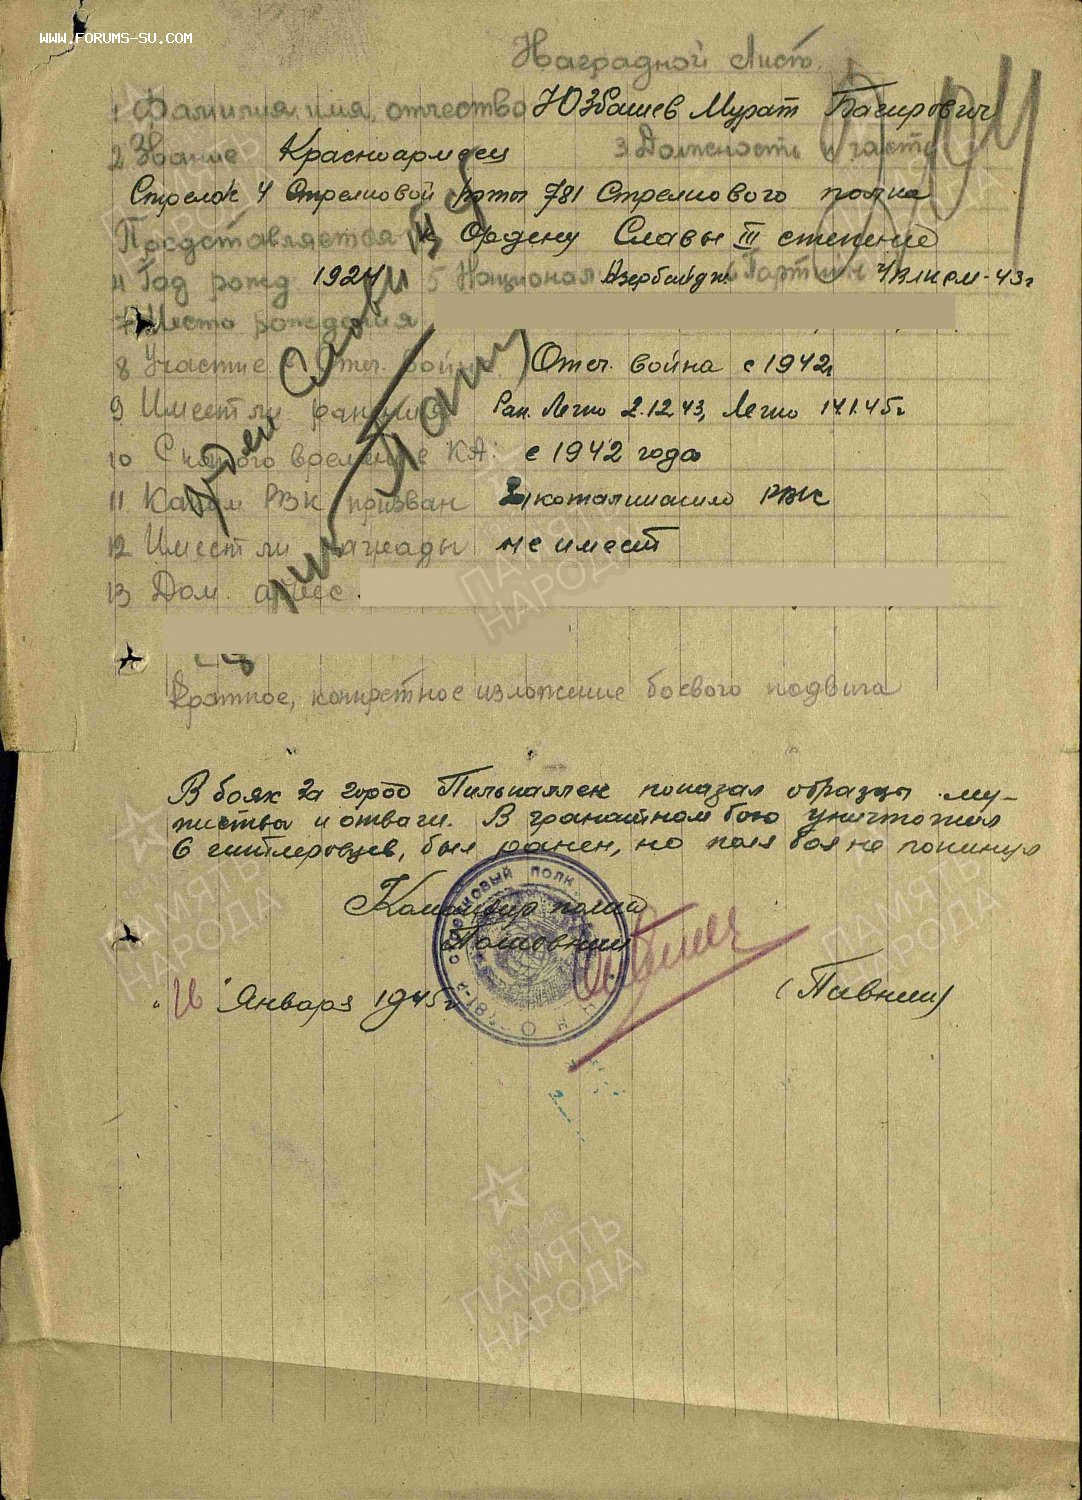 WWW.FORUMS-SU.COM
Наградной Лист.
1 Фамилия, имя, отчество Юзбашев Мурат Багирович
2 Звание Красноармеец 3 Должность и часть
Стрелок 4 Стрелковой роты 781 Стрелкового полка
Представляется к Ордену Славы III степени
4 Год рожд 1924 5 Национал Азербайдж. 6 Партийн ЧВЛКСМ-43г
7 Место рождения
8 Участие в Отеч. войне Отеч. война с 1942г
9 Имеет ли ранения Ран. Легко 2.12.43, Легко 14.1.45г
10 С какого времени в КА: с 1942 года
11 Каким РВК призван РВК
12 Имеет ли награды не имеет
13 Дом. адрес.
Орден Славы III ст
Краткое, конкретное изложение боевого подвига
В боях за город Пилькаллен показал образцы му-
жества и отваги. В гранатном бою уничтожил
6 гитлеровцев, был ранен, но поля боя не покинул
Командир полка
Полковник
(Пивник)
"26" Января 1945г
СТРЕЛКОВЫЙ ПОЛК
781-й
НКО
ПАМЯТЬ
НАРОДА
ПАМЯТЬ
НАРОДА
ПАМЯТЬ
НАРОДА
ПАМЯТЬ
НАРОДА